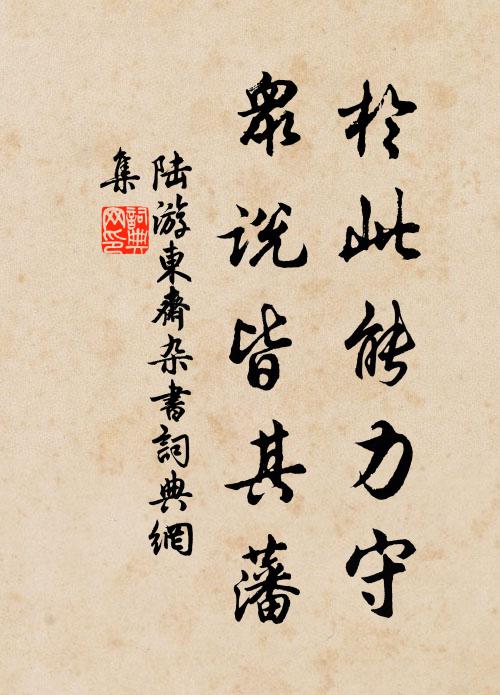 於此能力守
眾說皆其藩
陆游東齋杂書詞典網
集
詞典
网印